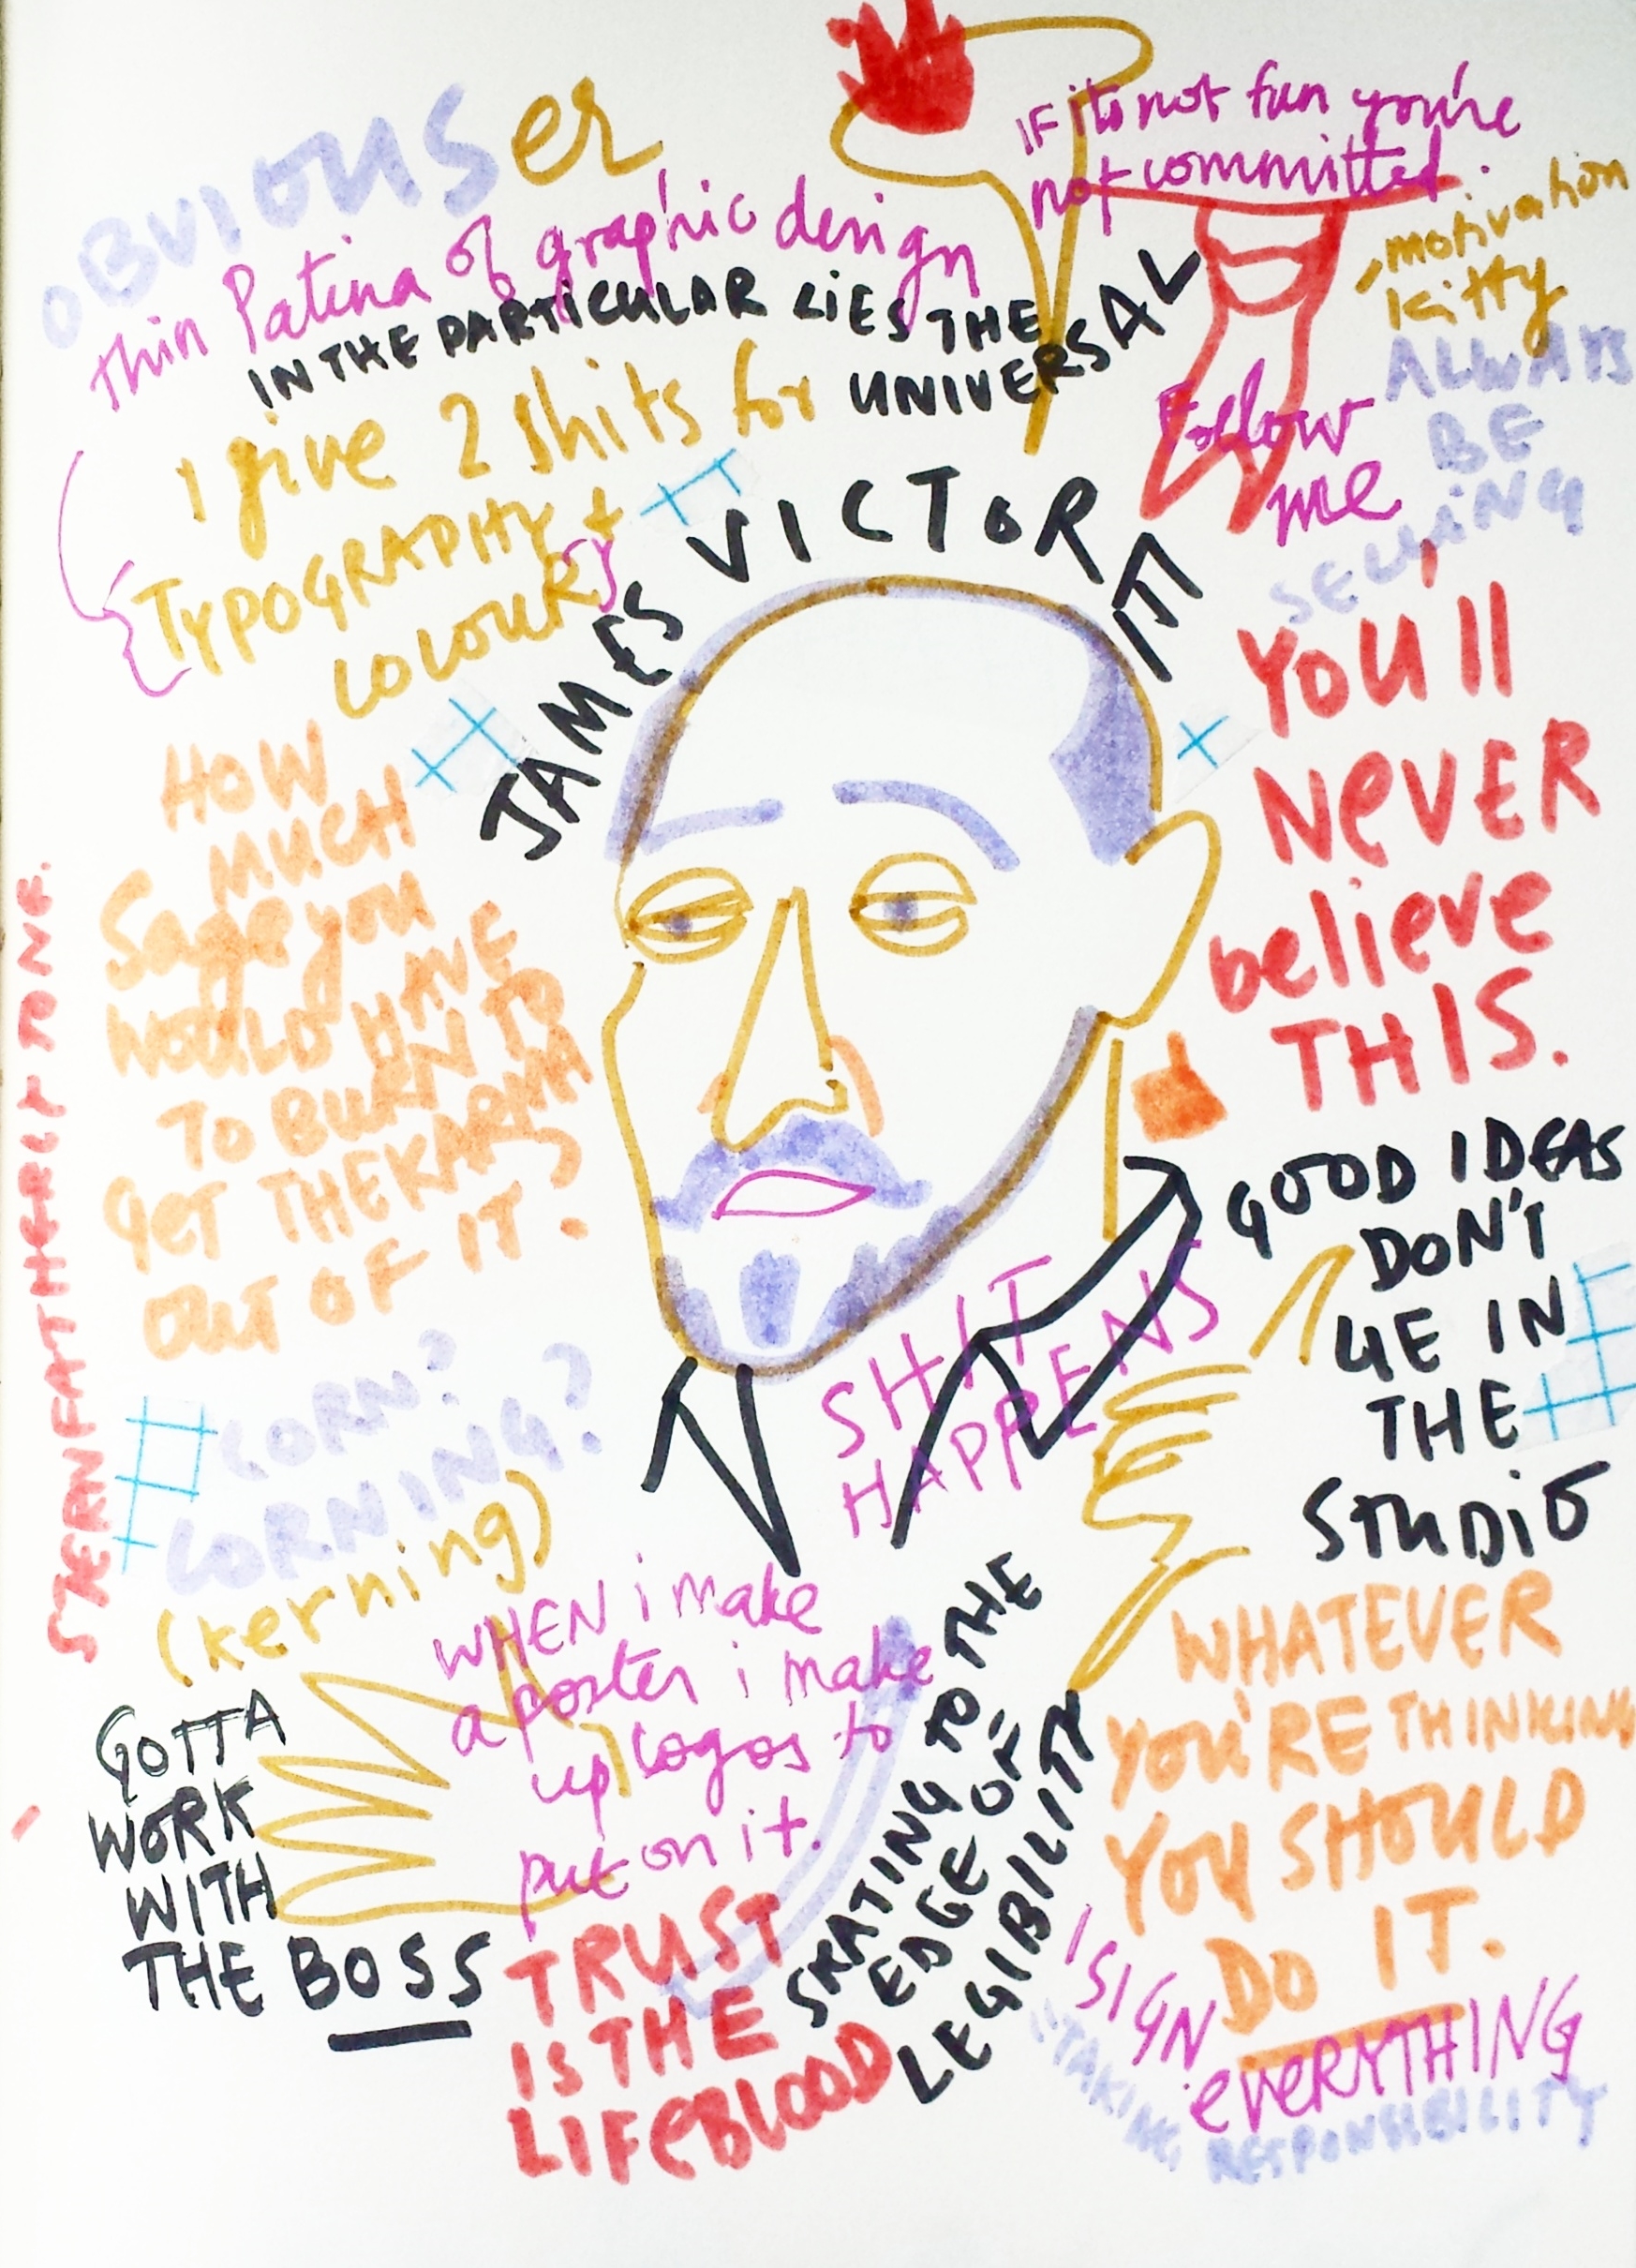 OBVIOUSer
Thin Patina of graphic design
IN THE PARTICULAR LIES THE
UNIVERSAL
I give 2 shits for
TYPOGRAPHY +
COLOUR
IF it's not fun you're
not committed.
motivation
kitty
ALWAYS
BE
SELLING
Follow
me
JAMES VICTORE
YOU'll
NEVER
believe
THIS.
HOW
MUCH
Sage you
WOULD HAVE
TO BURN TO
GET THE KARMA
OUT OF IT?
STERN FATHERLY TONE.
GOOD IDEAS
DON'T
LIE IN
THE
STUDIO
SHIT
HAPPENS
CORN?
CORNING?
(kerning)
WHEN i make
a poster i make
up logos to
put on it.
GOTTA
WORK
WITH
THE BOSS
TRUST
IS THE
LIFEBLOOD
SKATING TO THE
EDGE OF
LEGIBILITY
WHATEVER
YOU'RE THINKING
YOU SHOULD
DO IT.
I SIGN
everyTHING
"TAKING RESPONSIBILITY